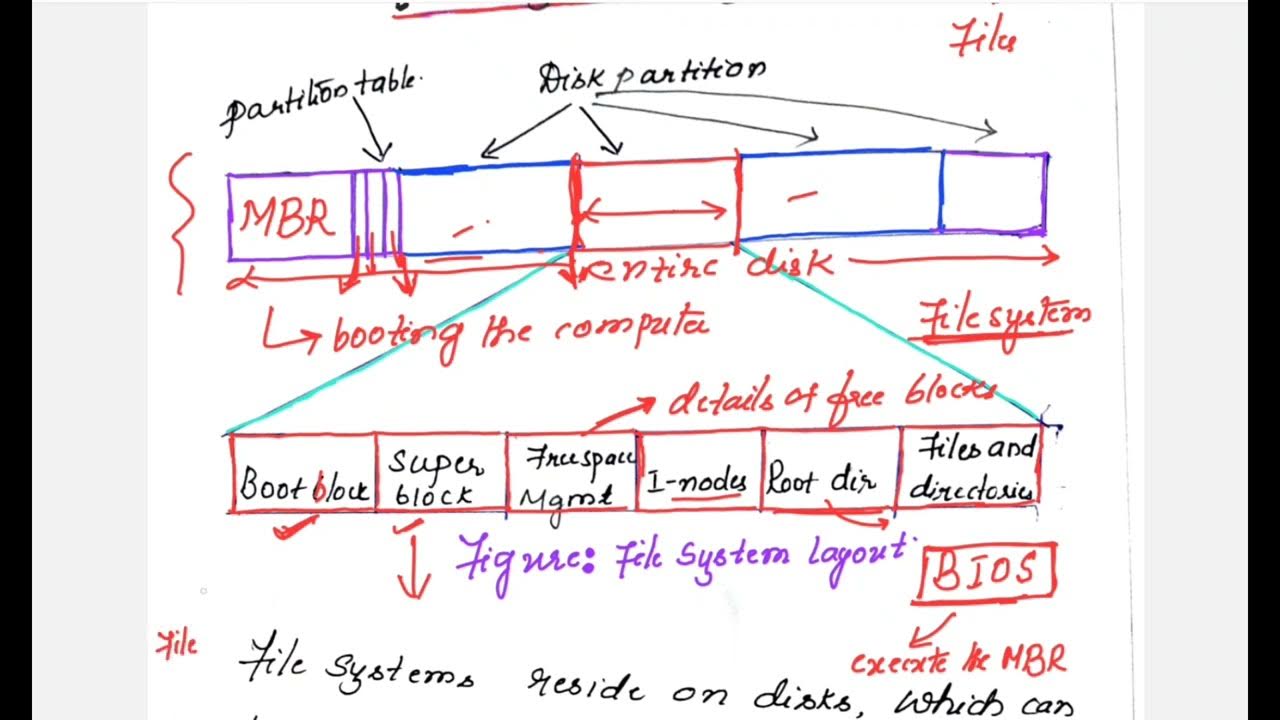 Files
Partition table.
Disk partition
MBR
entire disk
booting the computer
File system
details of free blocks
Boot block
Super block
Free space Mgmt
I-nodes
Root dir
Files and directories
Figure: File System layout.
BIOS
execute the MBR
File
File systems reside on disks, which can